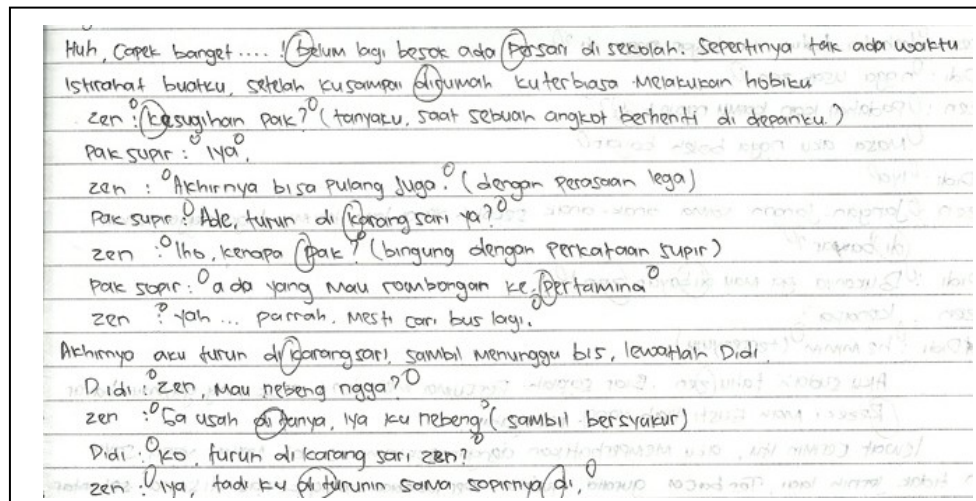 Huh, Capek banget.... ! belum lagi besok ada persari di sekolah. Sepertinya tak ada waktu
istirahat buatku, setelah kusampai dirumah kuterbiasa melakukan hobiku
Zen : kesugihan pak? (tanyaku, saat sebuah angkot berhenti di depanku.)
Pak supir : iya.
Zen : Akhirnya bisa pulang juga. (dengan perasaan lega)
Pak supir : Ade, turun di karang sari ya?
Zen : lho, kenapa pak? (bingung dengan perkataan supir)
Pak sopir : ada yang mau rombongan ke pertamina
Zen : yah ... parrah. Mesti cari bus lagi.
Akhirnya aku turun di karangsari, sambil menunggu bis, lewatlah Didi.
Didi : Zen, mau nebeng ngga?
Zen : Ga usah ditanya, iya ku nebeng (sambil bersyukur)
Didi : ko, turun di karang sari zen?
Zen : iya, tadi ku diturunin sama sopirnya di,